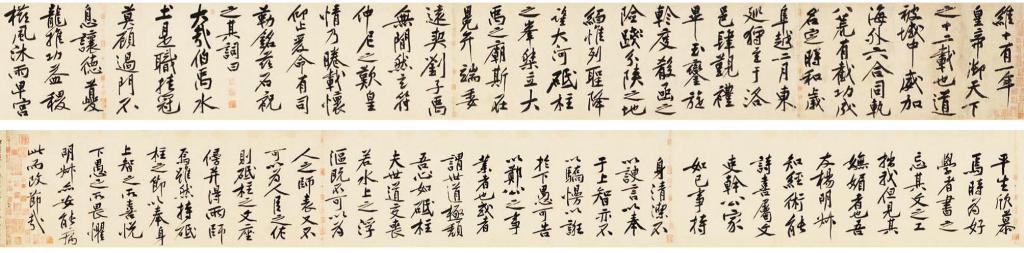 維十有一年
皇帝御天下
之十二載也道
被域中威加
海外六合同軌
八荒有截功成
名定時和歲
阜越二月東
巡狩至于洛
邑肆覲禮
畢玉鑾旋
軫度殽函之
險踐分陝之地
緬惟列聖降
望大河砥柱
之峯桀立大
禹之廟斯在
冕弁端委
遠契劉子禹
無間然玄符
仲尼之歎皇
情乃睠載懷
仰止爰命有司
勒銘茲石祝
之其詞曰
大哉伯禹水
土是職挂冠
莫顧過門不
息讓德夔
龍推功益稷
櫛風沐雨卑宮
平生欣慕
焉時為好
學者書之
忘其文之工
拙我但見其
嫵媚者也吾
友楊明叔
知經術能
詩喜屬文
吏幹公家
如己事持
身清潔不
以諛言以奉
于上智亦不
以驕慢以誑
於下愚可告
以鄭公之事
業者也或者
謂世道極頹
吾心如砥柱
夫世道交喪
若水上之浮
漚既不可以為
人之師表又不
可以為人臣之佐
則砥柱之文座
傍并得兩師
焉雖然持砥
柱之節以奉身
上智之所喜悅
下愚之所畏懼
明叔亦安能病
此而改節哉